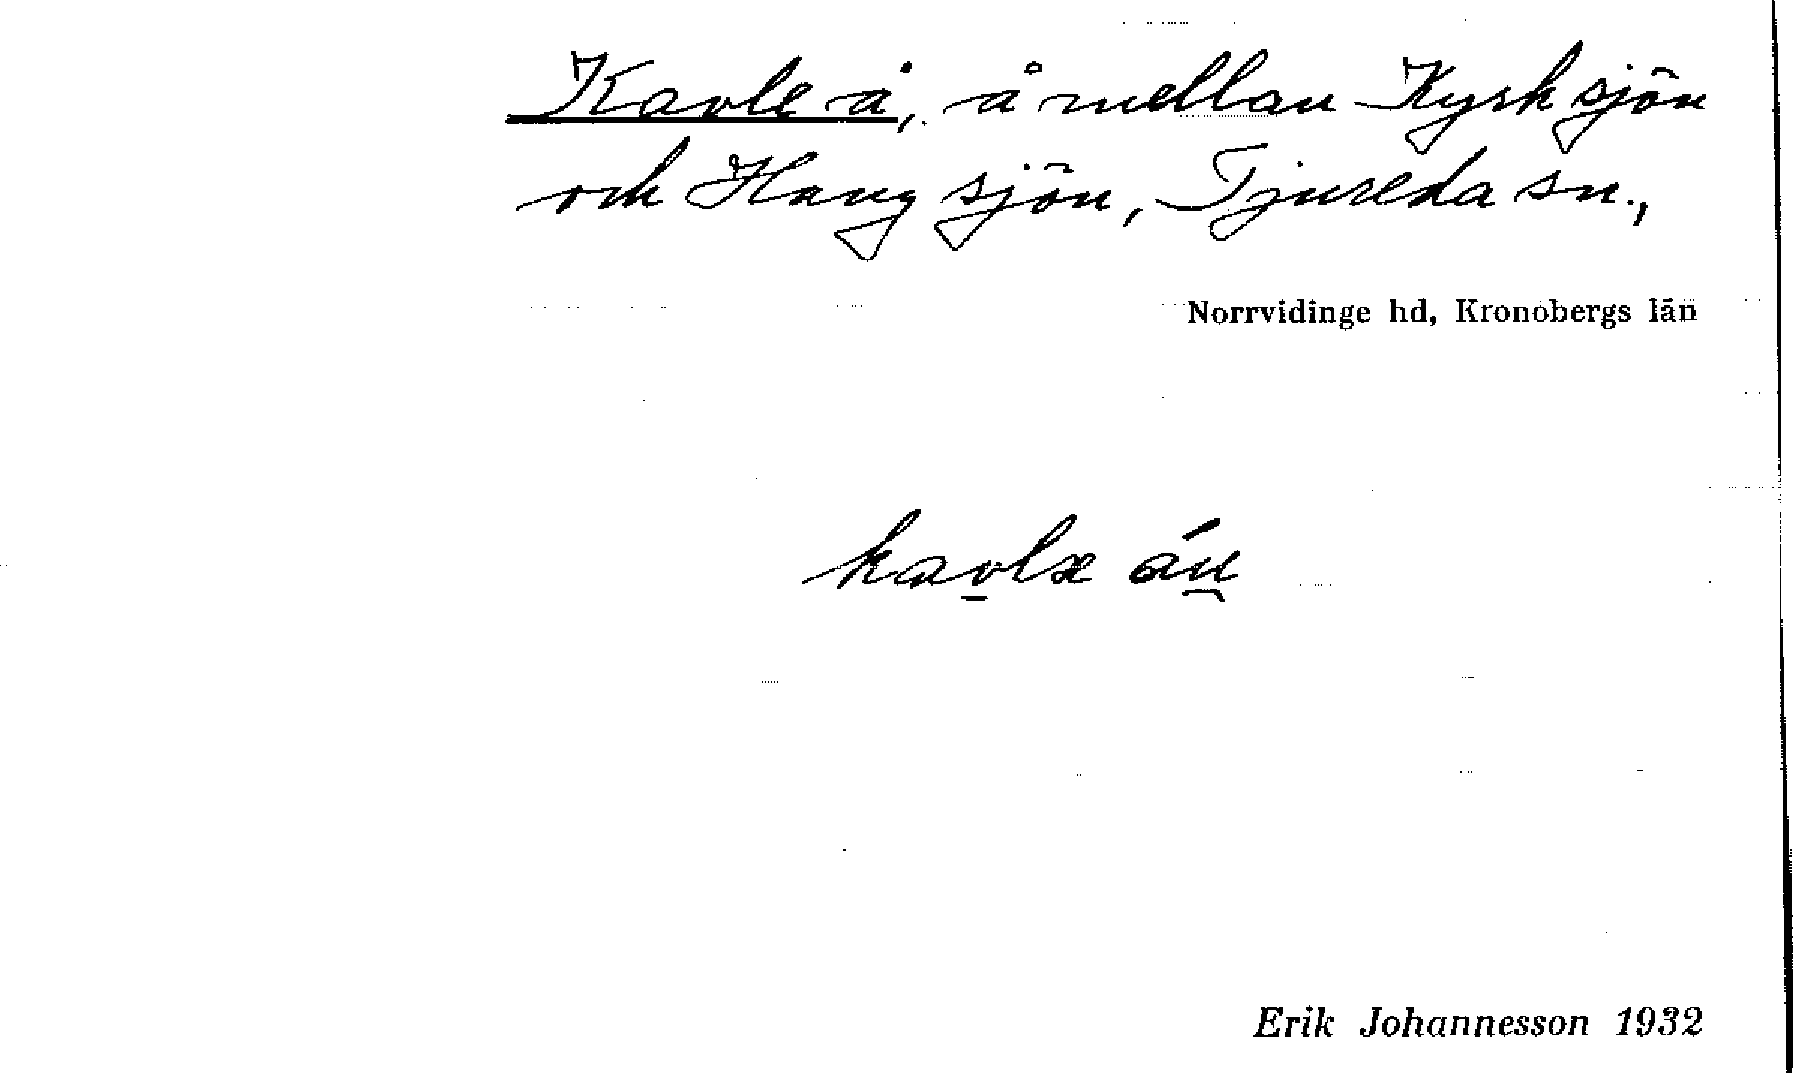 Kavle å, å mellan Kyrksjön
och Haugsjön, Tjureda sn.,
Norrvidinge hd, Kronobergs län
Erik Johannesson 1932